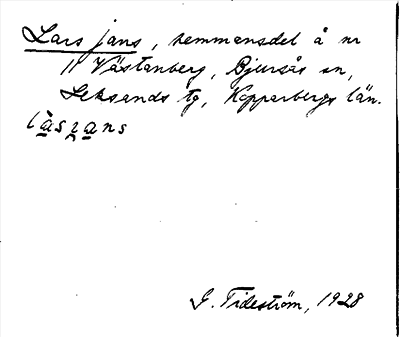 Lars jans, hemmansdel å nr
11 Västanberg, Bjursås sn,
Leksands tg, Kopparbergs län.
làsʒans
G. Tideström, 1928